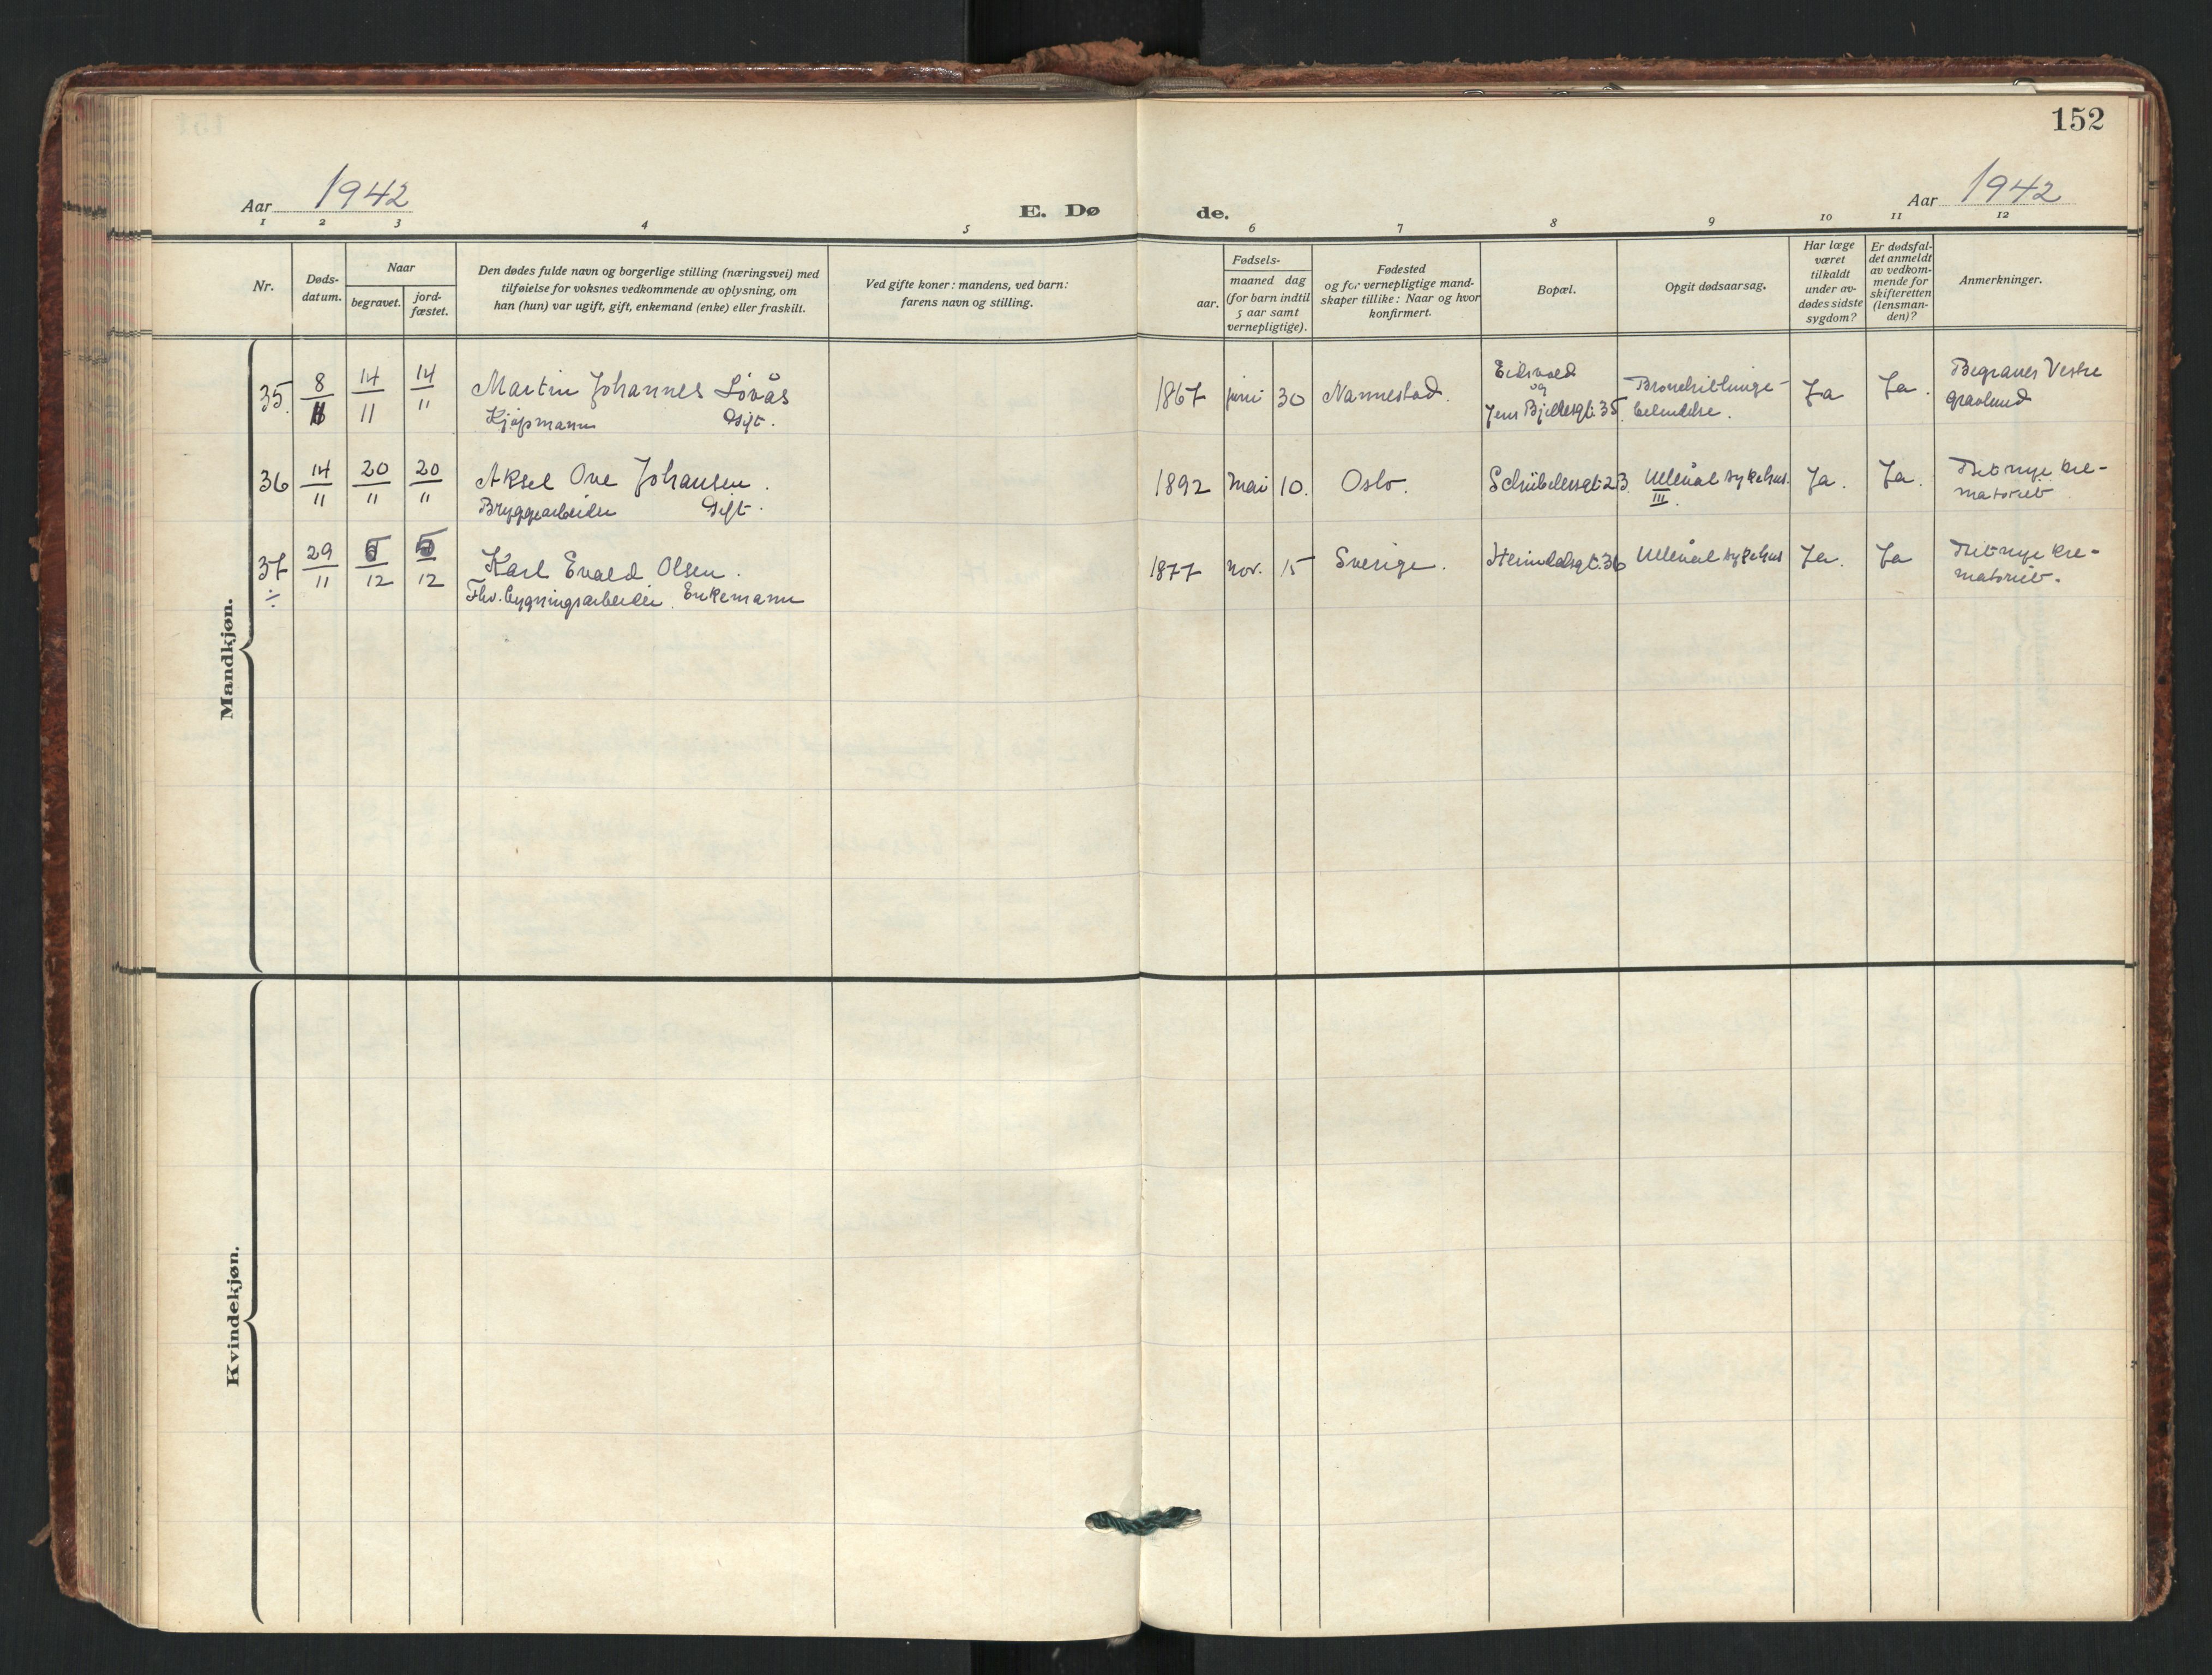 152
Aar 1942
E. Dø de.
Aar 1942
1 2 3 4 5 6 7 8 9 10 11 12
Nr.
Døds-
datum.
Naar
begravet.
jord-
fæstet.
Den dødes fulde navn og borgerlige stilling (næringsvei) med
tilføielse for voksnes vedkommende av oplysning, om
han (hun) var ugift, gift, enkemand (enke) eller fraskilt.
Ved gifte koner: mandens, ved barn:
farens navn og stilling.
Fødsels-
aar.
maaned dag
(for barn indtil
5 aar samt
vernepligtige).
Fødested
og for vernepligtige mand-
skaper tillike: Naar og hvor
konfirmert.
Bopæl.
Opgit dødsaarsag.
Har læge
været
tilkaldt
under av-
dødes sidste
sygdom?
Er dødsfal-
det anmeldt
av vedkom-
mende for
skifteretten
(lensman-
den)?
Anmerkninger.
Mandkjøn.
35. 8/11 14/11 14/11
Martin Johannes Lövås
Kjöpmann Gift.
1867 juni 30 Nannestad.
Eidsvold
og
Jens Bjelkesgt. 35
Bronchitlunge-
betendelse.
Ja Ja.
Begraves Vestre
gravlund
36 14/11 20/11 20/11
Aksel Ove Johansen.
Bryggearbeider Gift.
1892 Mai 10. Oslo.
Schübelersgt. 23
Ullevål sykehus.
III.
Ja. Ja.
Det nye kre-
matoriet
37 29/11 5/12 5/12
÷
Karl Evald Olsen.
Fhv. bygningsarbeider. Enkemann
1877 nov. 15 Sverige.
Heimdalsgt. 36
Ullevål sykehus
Ja. Ja
Det nye kre-
matoriet.
Kvindekjøn.